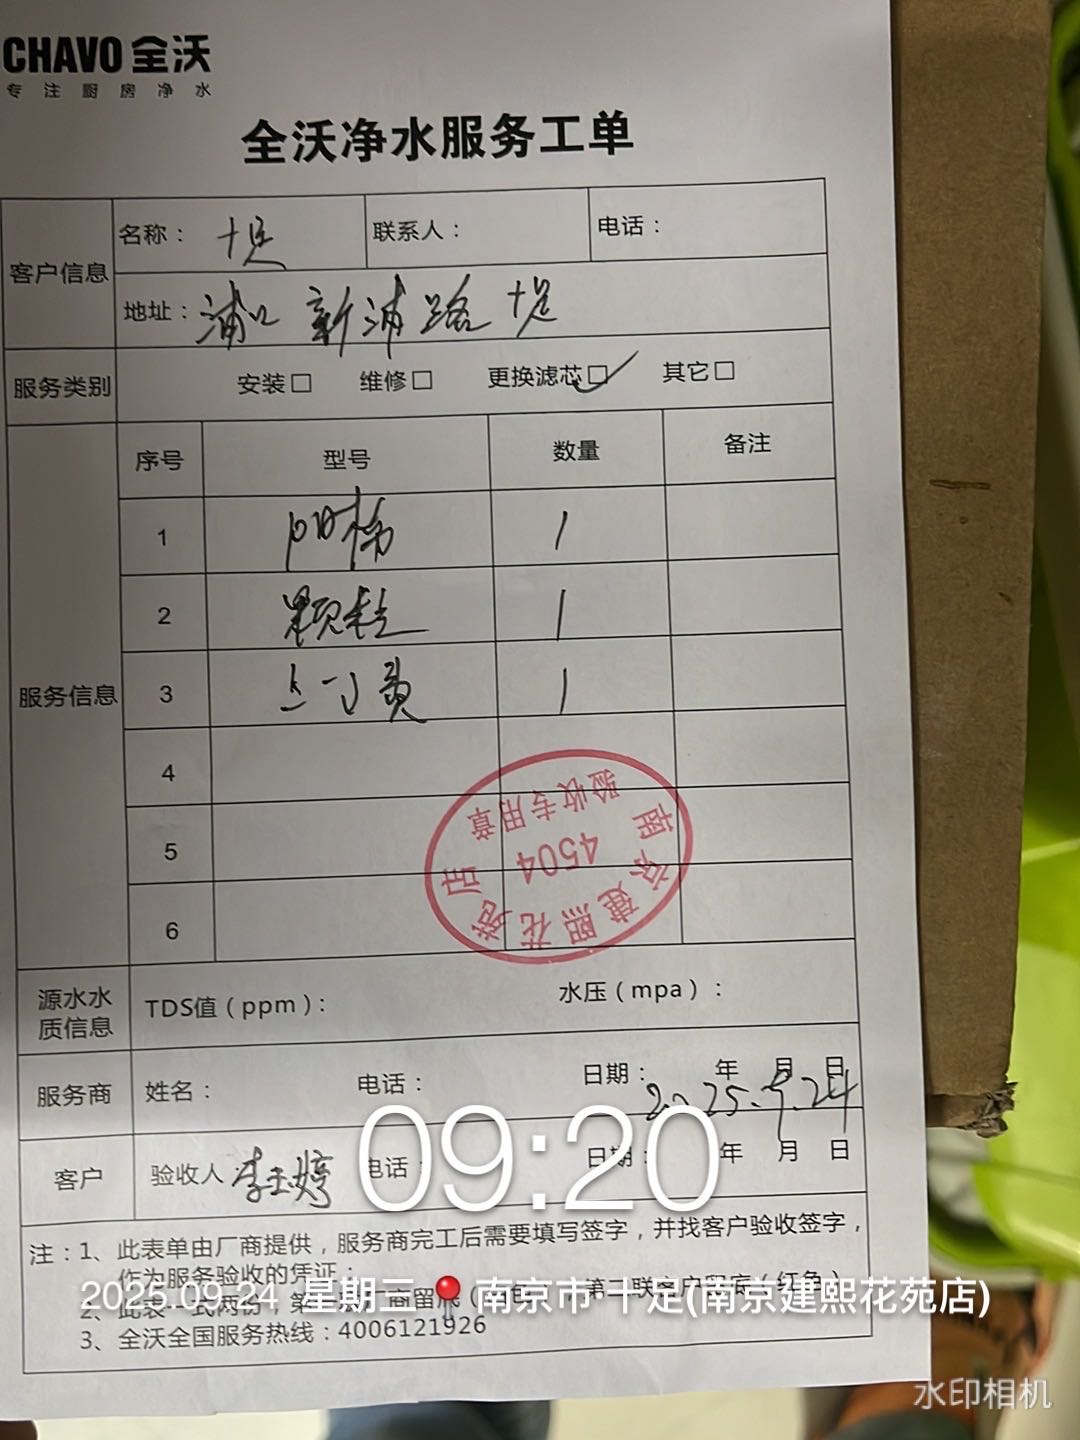 CHAVO 全沃
专注厨房净水
全沃净水服务工单
客户信息
名称： 十足
联系人：
电话：
地址：浦口 新浦路 十足
服务类别
安装□ 维修□ 更换滤芯□✓ 其它□
服务信息
序号 型号 数量 备注
1 阻垢 1
2 颗粒 1
3 1
4
5
6
南京建熙花苑店
4504
验收专用章
源水水质信息
TDS值（ppm）：
水压（mpa）：
服务商
姓名：
电话：
日期： 年 月 日
2025.9.24
客户
验收人：李玉婷
电话：
日期： 年 月 日
09:20
注：1、此表单由厂商提供，服务商完工后需要填写签字，并找客户验收签字，
作为服务验收的凭证；
2、此表一式两份，第 商留底（ 第二联客户留底（红色）
3、全沃全国服务热线：4006121926
2025.09.24 星期三 南京市·十足(南京建熙花苑店)
水印相机